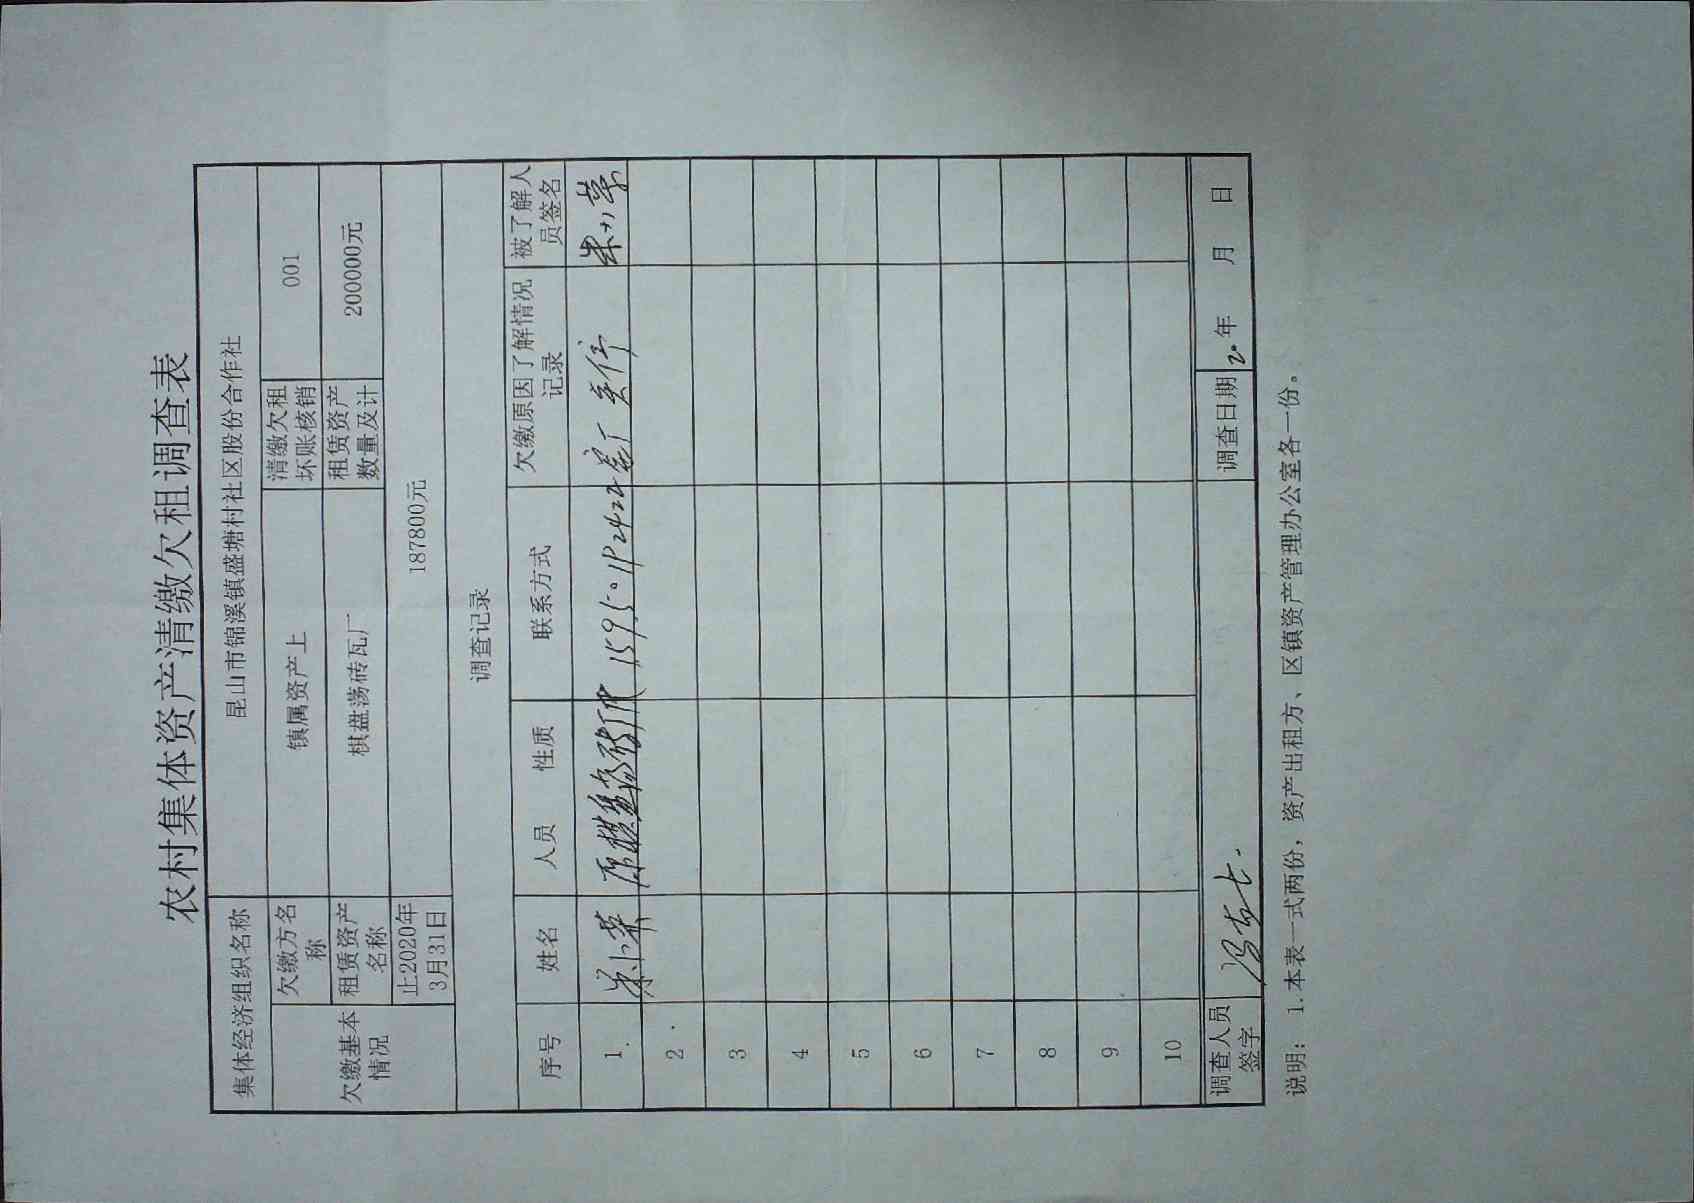 农村集体资产清缴欠租调查表
集体经济组织名称 昆山市锦溪镇盛塘村社区股份合作社
欠缴基本情况
欠缴方名称 镇属资产上 清缴欠租坏账核销 001
租赁资产名称 棋盘荡砖瓦厂 租赁资产数量及计 200000元
止2020年3月31日 187800元
调查记录
序号 姓名 人员 性质 联系方式 欠缴原因了解情况记录 被了解人员签名
1.
2.
3
4
5
6
7
8
9
10
调查人员签字 调查日期 20 年 月 日
说明：1.本表一式两份，资产出租方、区镇资产管理办公室各一份。